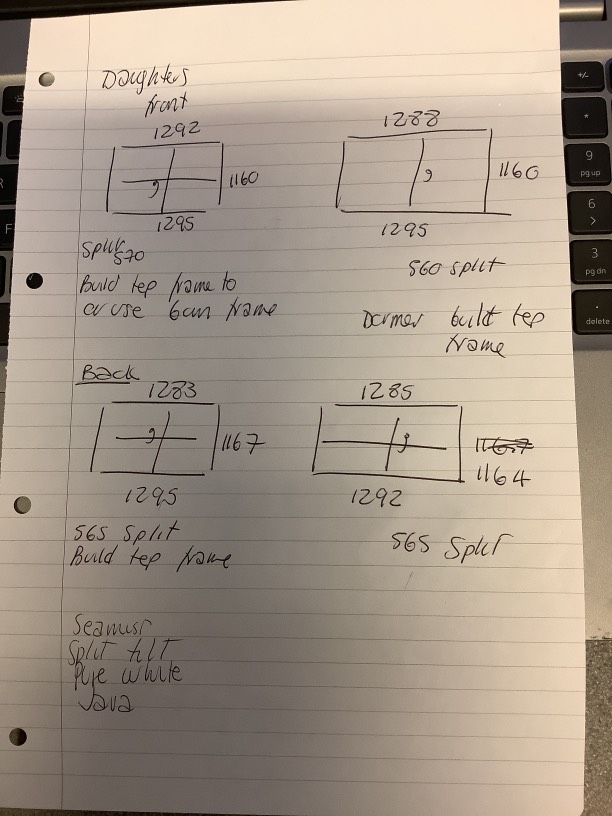 Daughters
front
1292
1160
1295
Split 570
Build tep frame to
or use 6cm frame
1288
1160
1295
560 split
Dormer build tep
frame
Back
1283
1167
1295
565 Split
Build tep frame
1285
1164
1292
565 Split
Split tilt
Pure white
Java
9
pg up
6
>
3
pg dn
.
delete
+/-
*
R
F